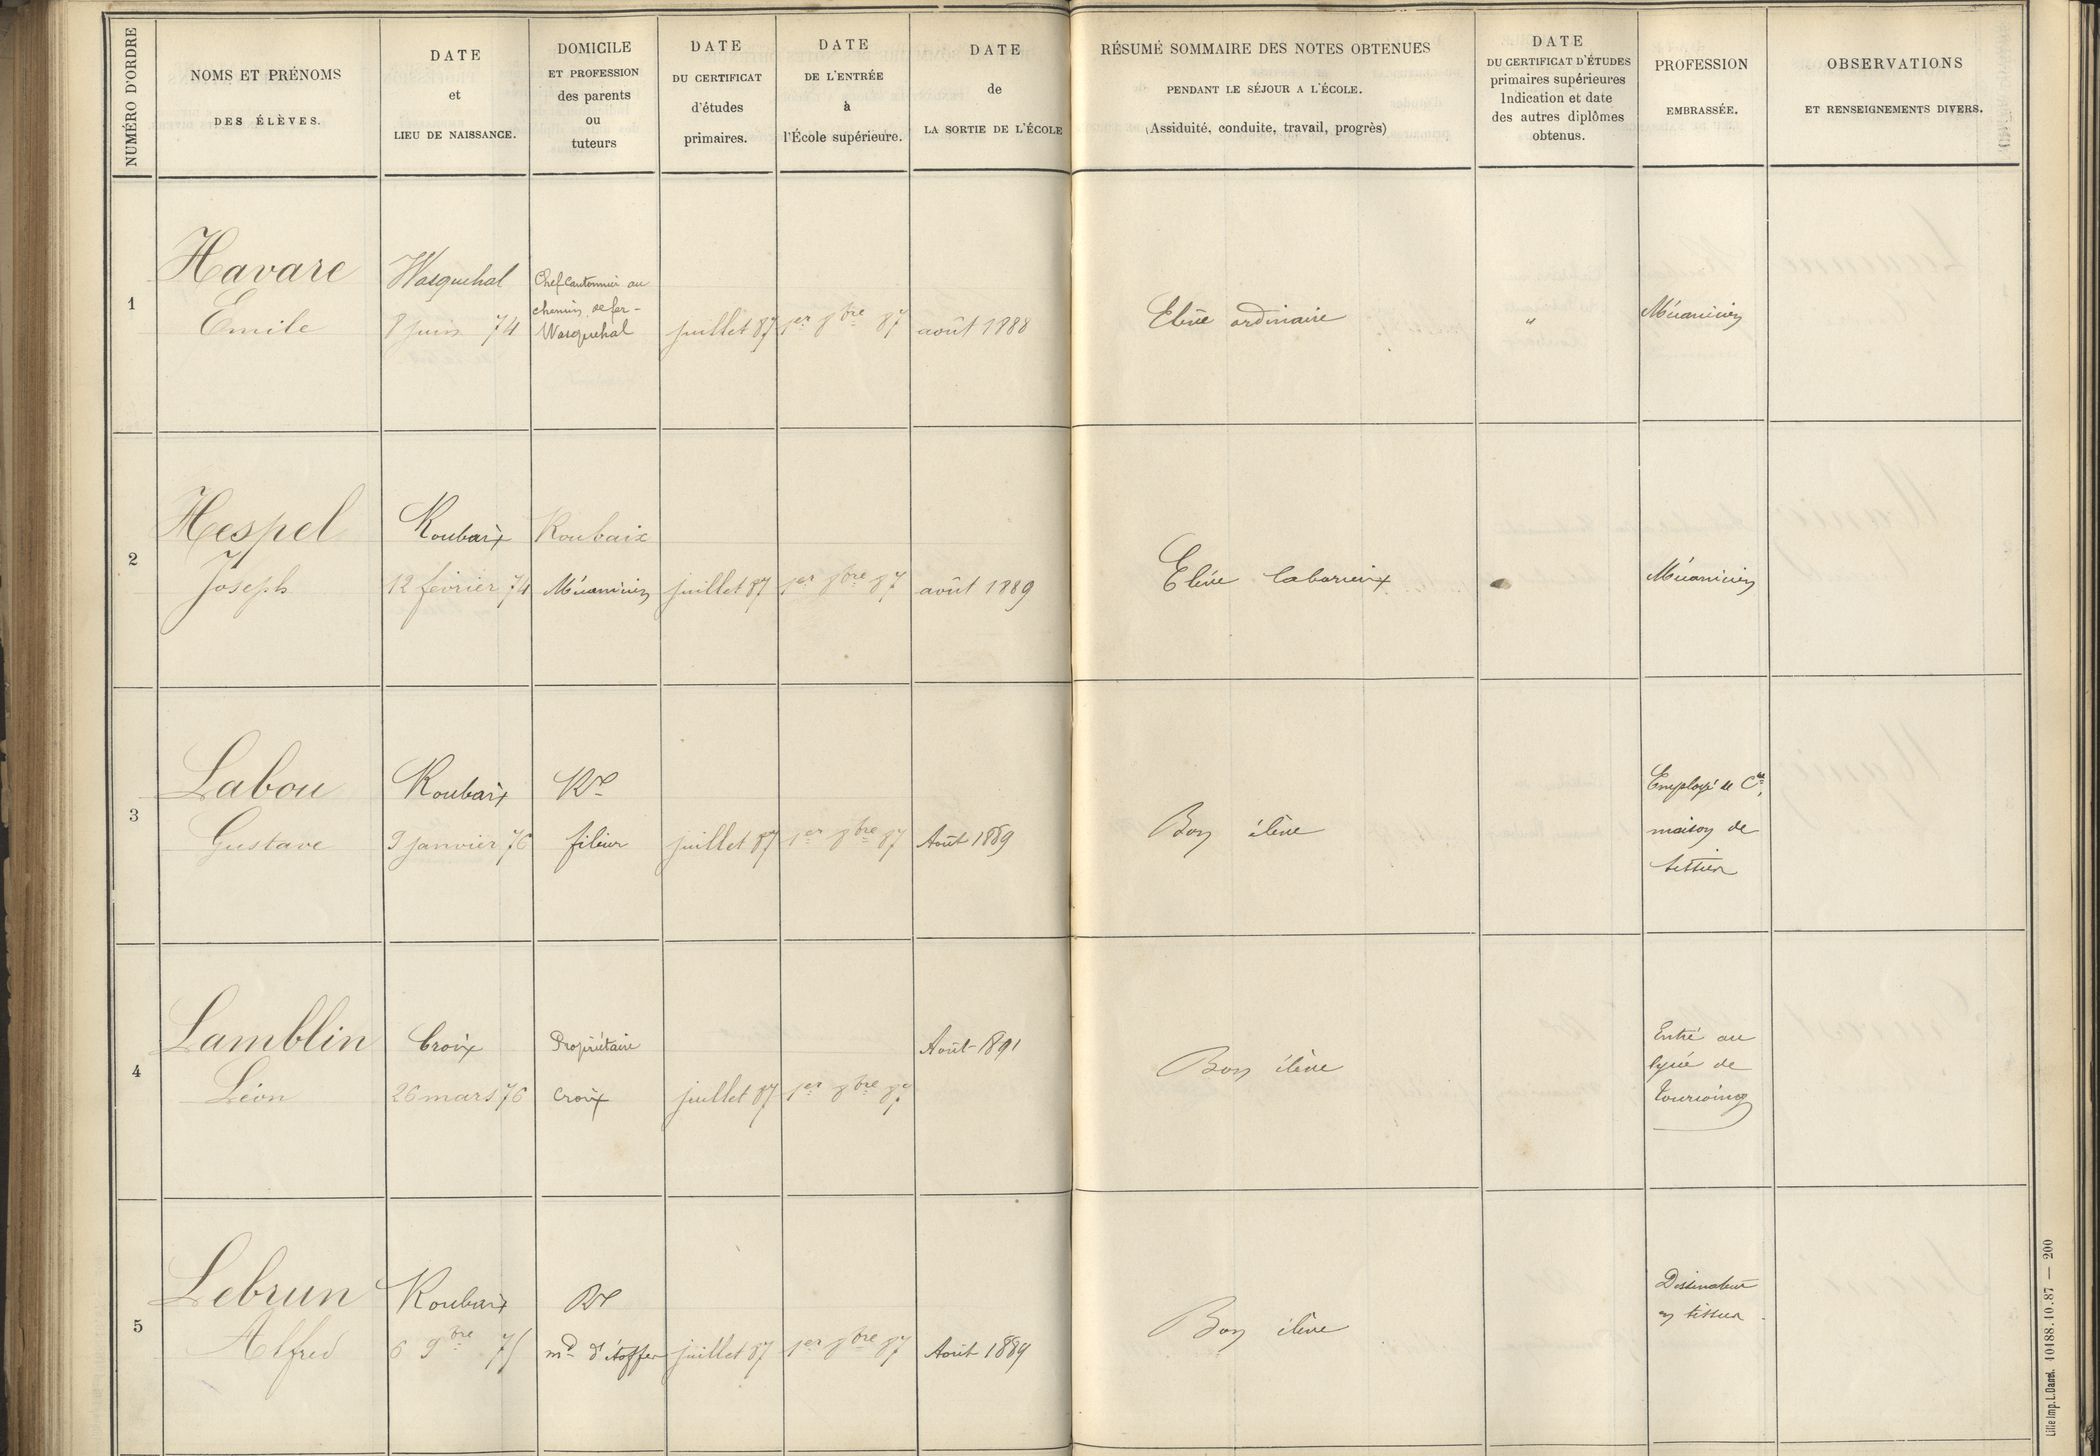 NUMÉRO D'ORDRE
NOMS ET PRÉNOMS
DES ÉLÈVES.
DATE
et
LIEU DE NAISSANCE.
DOMICILE
ET PROFESSION
des parents
ou
tuteurs
DATE
DU CERTIFICAT
d'études
primaires.
DATE
DE L'ENTRÉE
à
l'École supérieure.
DATE
de
LA SORTIE DE L'ÉCOLE
RÉSUMÉ SOMMAIRE DES NOTES OBTENUES
PENDANT LE SÉJOUR A L'ÉCOLE.
(Assiduité, conduite, travail, progrès)
DATE
DU CERTIFICAT D'ÉTUDES
primaires supérieures
Indication et date
des autres diplômes
obtenus.
PROFESSION
EMBRASSÉE.
OBSERVATIONS
ET RENSEIGNEMENTS DIVERS.
1
Havare
Emile
Wasquehal
8 juin 74
Chef cantonnier au
chemin de fer -
Wasquehal
juillet 87
1er 8bre 87
août 1888
Elève ordinaire
"
Mécanicien
2
Hespel
Joseph
Roubaix
12 février 74
Roubaix
Mécanicien
juillet 87
1er 8bre 87
août 1889
Elève laborieux
Mécanicien
3
Labou
Gustave
Roubaix
9 janvier 76
Rx
fileur
juillet 87
1er 8bre 87
Août 1889
Bon élève
Employé de Cce,
maison de
tissus
4
Lamblin
Léon
Croix
26 mars 76
Propriétaire
Croix
juillet 87
1er 8bre 87
Août 1891
Bon élève
Entré au
lycée de
Tourcoing
5
Lebrun
Alfred
Roubaix
6 9bre 75
Rx
md d'étoffes
juillet 87
1er 8bre 87
Août 1889
Bon élève
Dessinateur
en tissus
Lille Imp. L. Danel. 10188.10.87 — 200